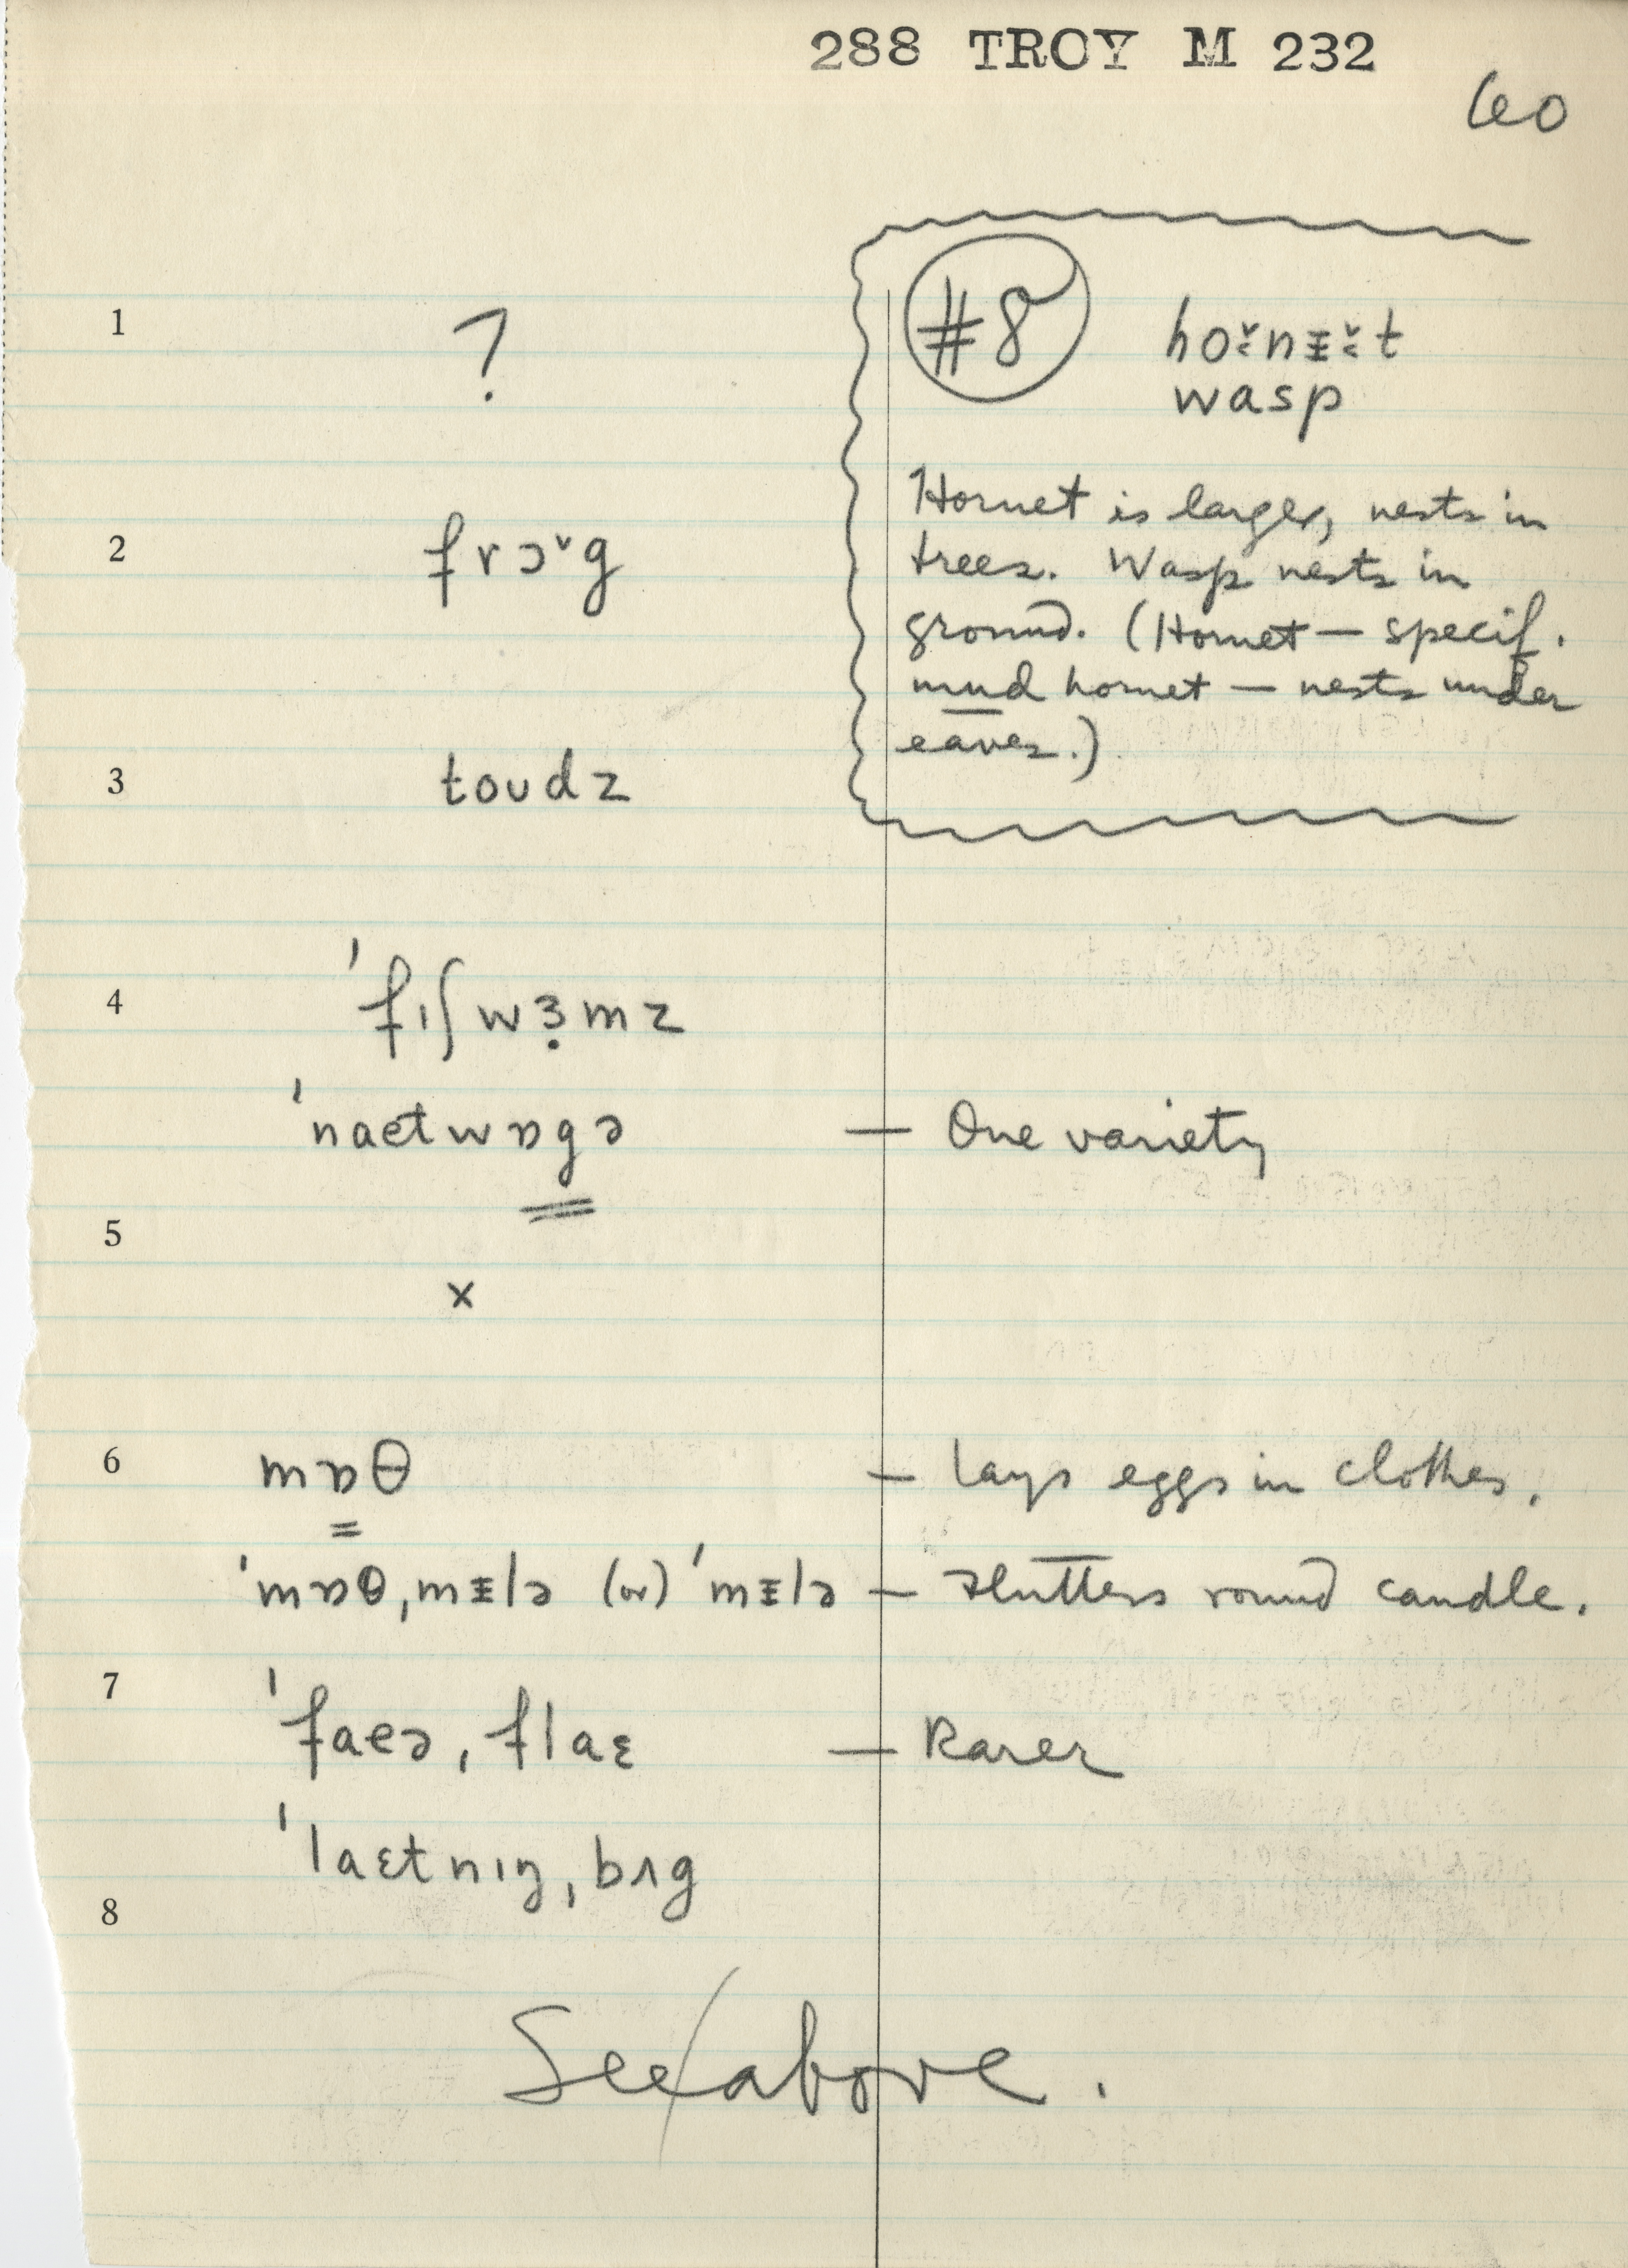 288 TROY M 232
60
1
?
#8
hoɚ̆nᵻ̆t
wasp
Hornet is larger, nests in
trees. Wasp nests in
ground. (Hornet — specif.
mud hornet — nests under
eaves.)
2
frɔ˅g
3
toʊdz
4
ˈfɪʃwɜ̣mz
ˈnaetwɒgə — One variety
5
x
6
mɒθ — Lays eggs in clothes.
ˈmɒθˌmᵻlə (or) ˈmᵻlə — Flutters round candle.
7
ˈfaeəˌflaɛ — Rarer
ˈlaɛtnɪŋˌbʌg
8
See above.